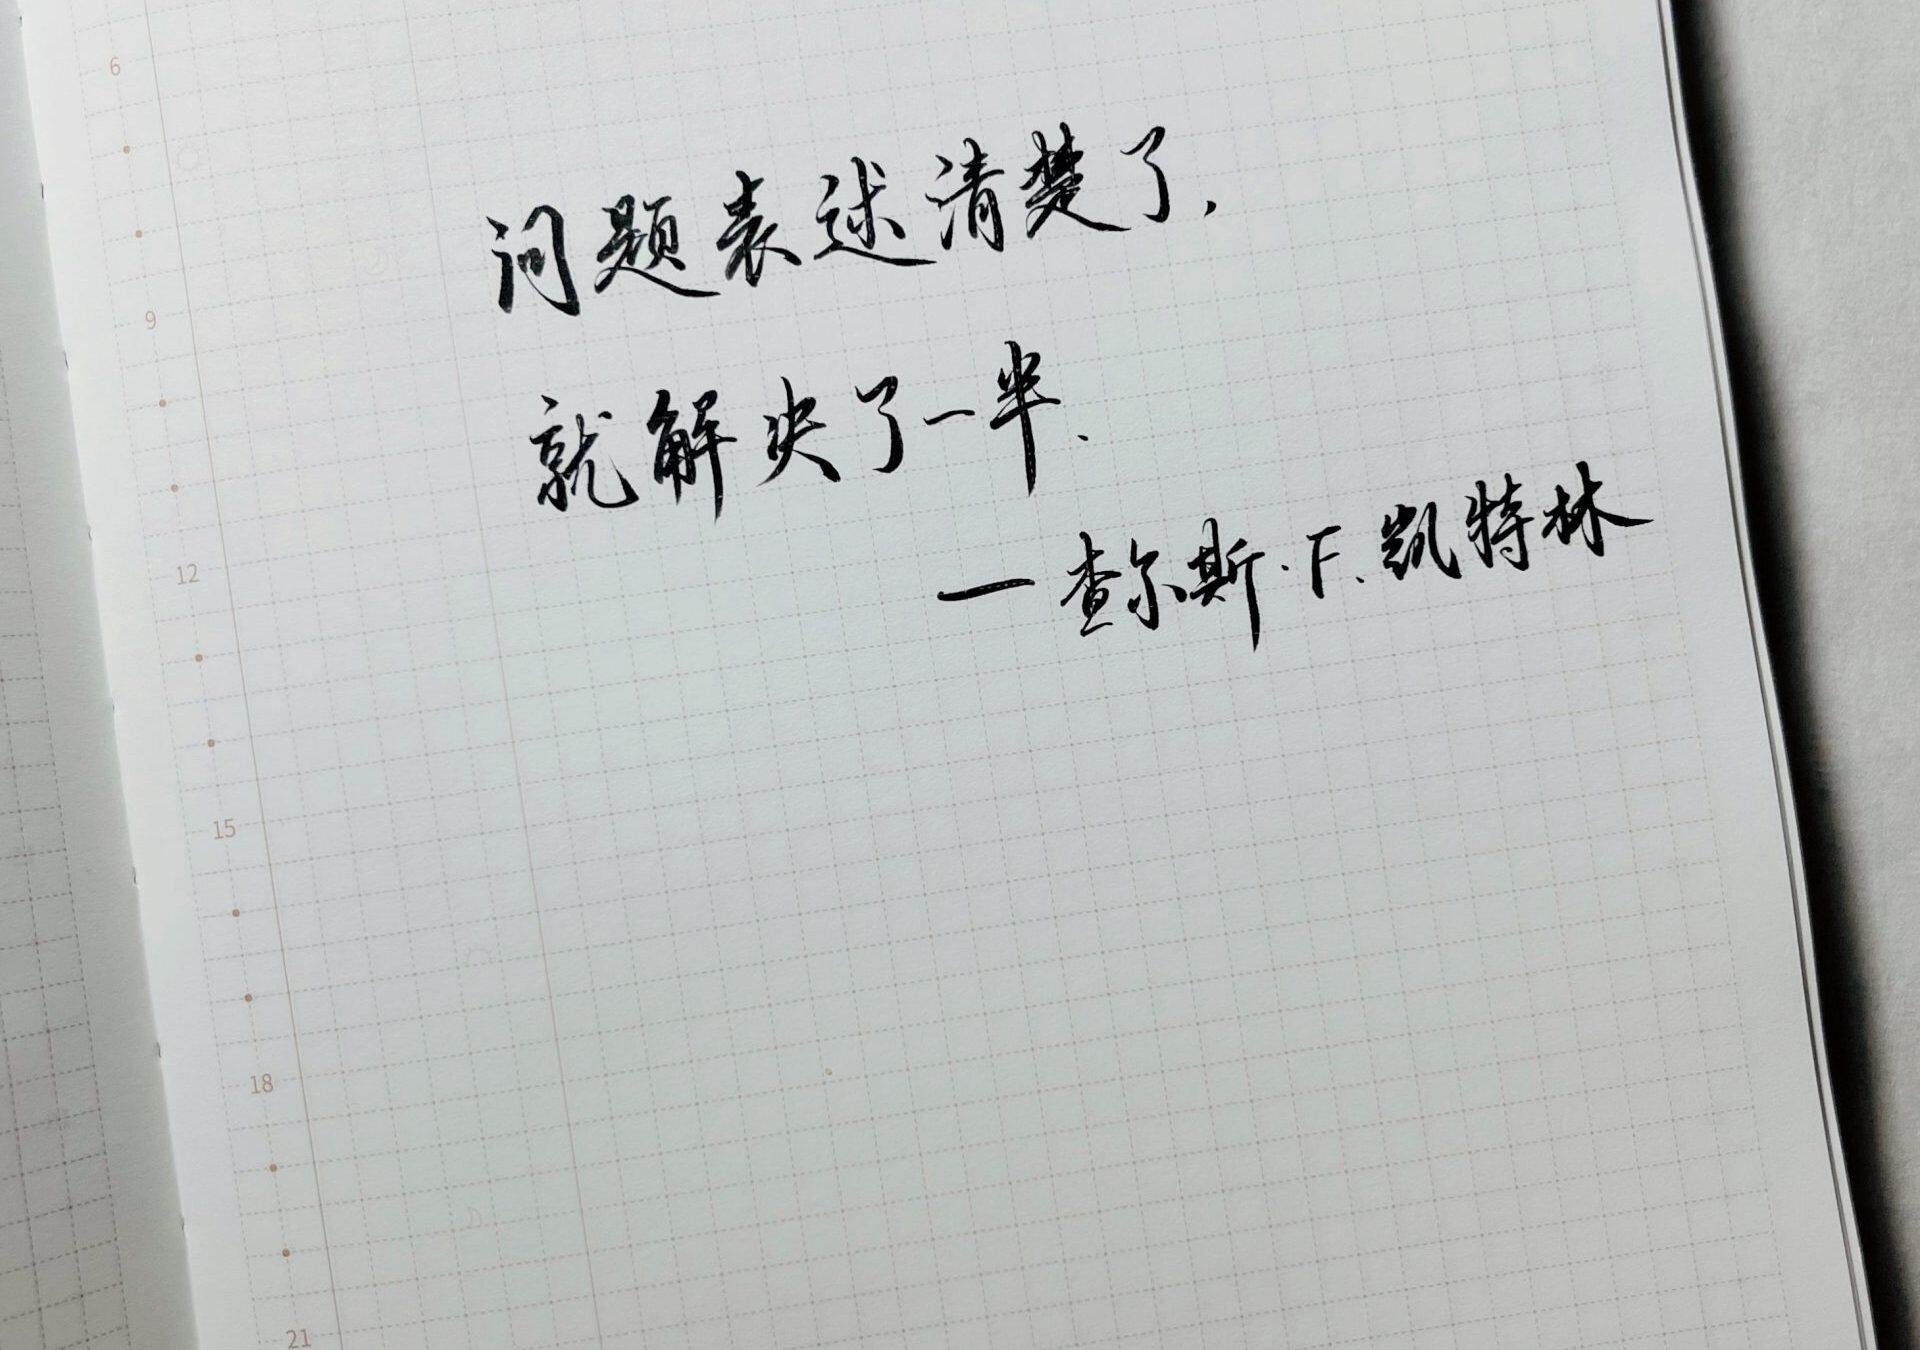 6
9
12
15
18
21
问题表述清楚了,
就解决了一半.
—查尔斯·F.凯特林